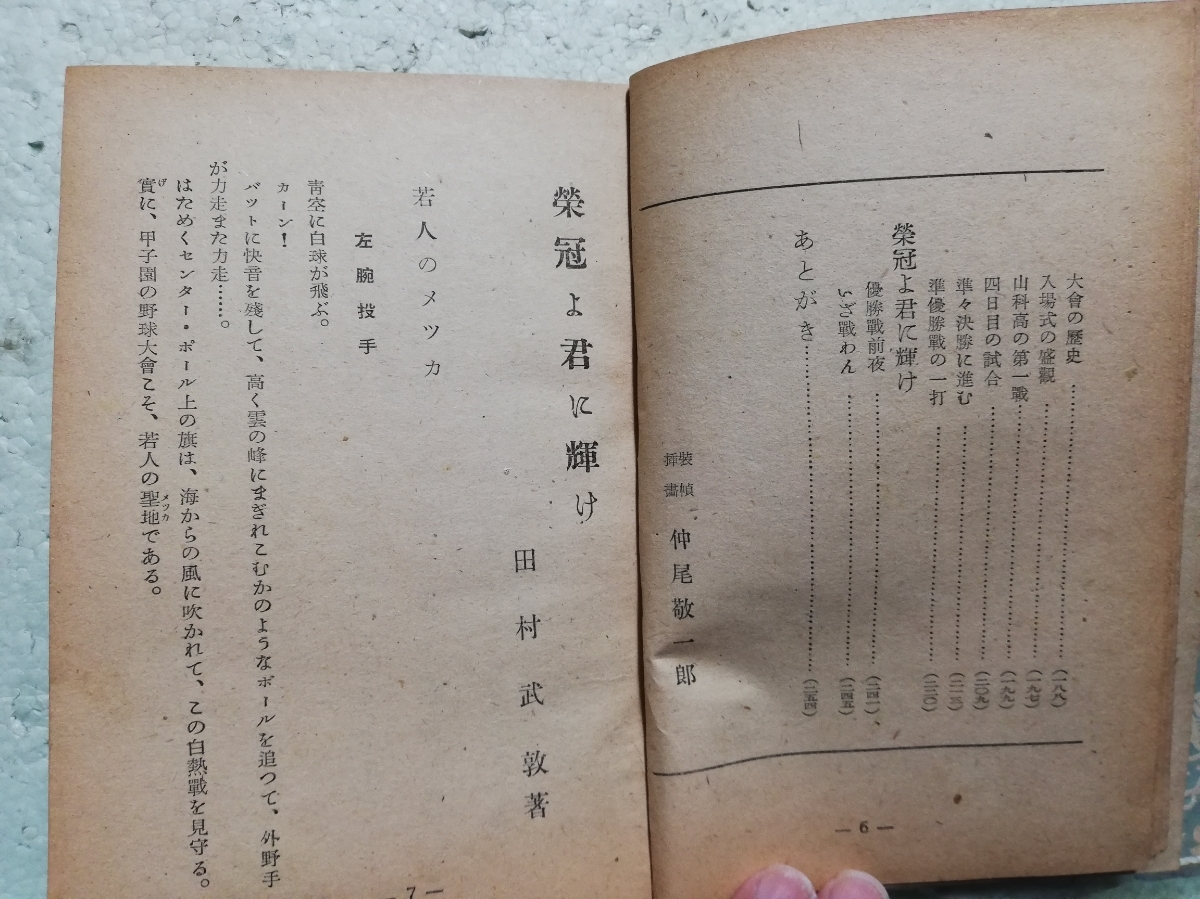 大會の歷史……………………(一八八)
入場式の盛觀……………………(一九七)
山科高の第一戰……………………(一九九)
四日目の試合……………………(二〇九)
準々決勝に進む……………………(二一三)
準優勝戰の一打……………………(二三〇)
榮冠よ君に輝け
優勝戰前夜……………………(二四一)
いざ戰わん……………………(二四五)
あとがき……………………(二五四)
裝幀
挿畫
仲尾敬一郎
—6—
榮冠よ君に輝け
田村武敦著
若人のメツカ
左腕投手
靑空に白球が飛ぶ。
カーン!
バツトに快音を殘して、高く雲の峰にまぎれこむかのようなボールを追つて、外野手
が力走また力走……。
はためくセンター・ポール上の旗は、海からの風に吹かれて、この白熱戰を見守る。
實げに、甲子園の野球大會こそ、若人の聖地メツカである。
7—